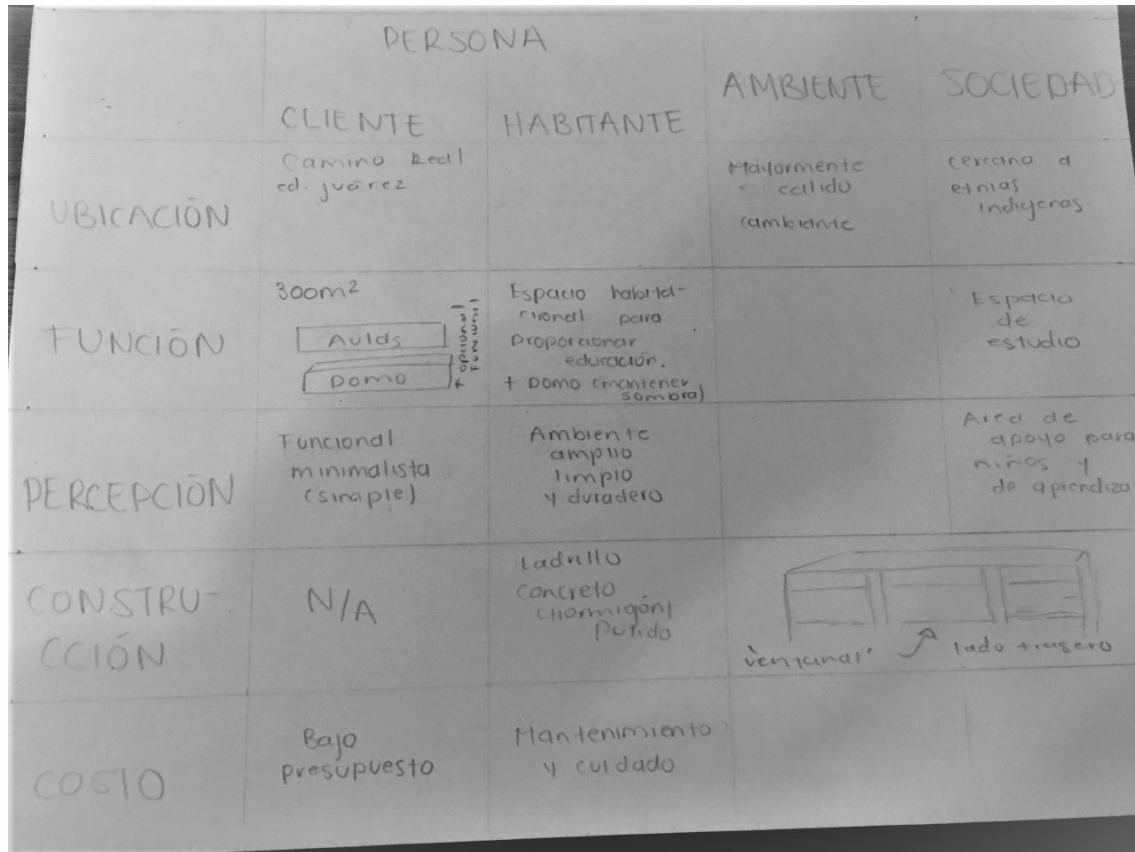 PERSONA
CLIENTE
HABITANTE
AMBIENTE
SOCIEDAD
UBICACIÓN
Camino Real
cd. juárez
Mayormente
calido
(ambiente
cercano a
etnias
indigenas
FUNCIÓN
300m²
Aulas
Domo
+ opcional
Funcional
Espacio habita-
cional para
proporcionar
educación.
+ Domo (mantener
sombra)
Espacio
de
estudio
PERCEPCIÓN
Funcional
minimalista
(simple)
Ambiente
amplio
limpio
y duradero
Area de
apoyo para
niños y
de aprendiza
CONSTRU-
CCIÓN
N/A
Ladrillo
Concreto
(hormigón)
Pulido
"ventanal"
lado trasero
COSTO
Bajo
presupuesto
Mantenimiento
y cuidado